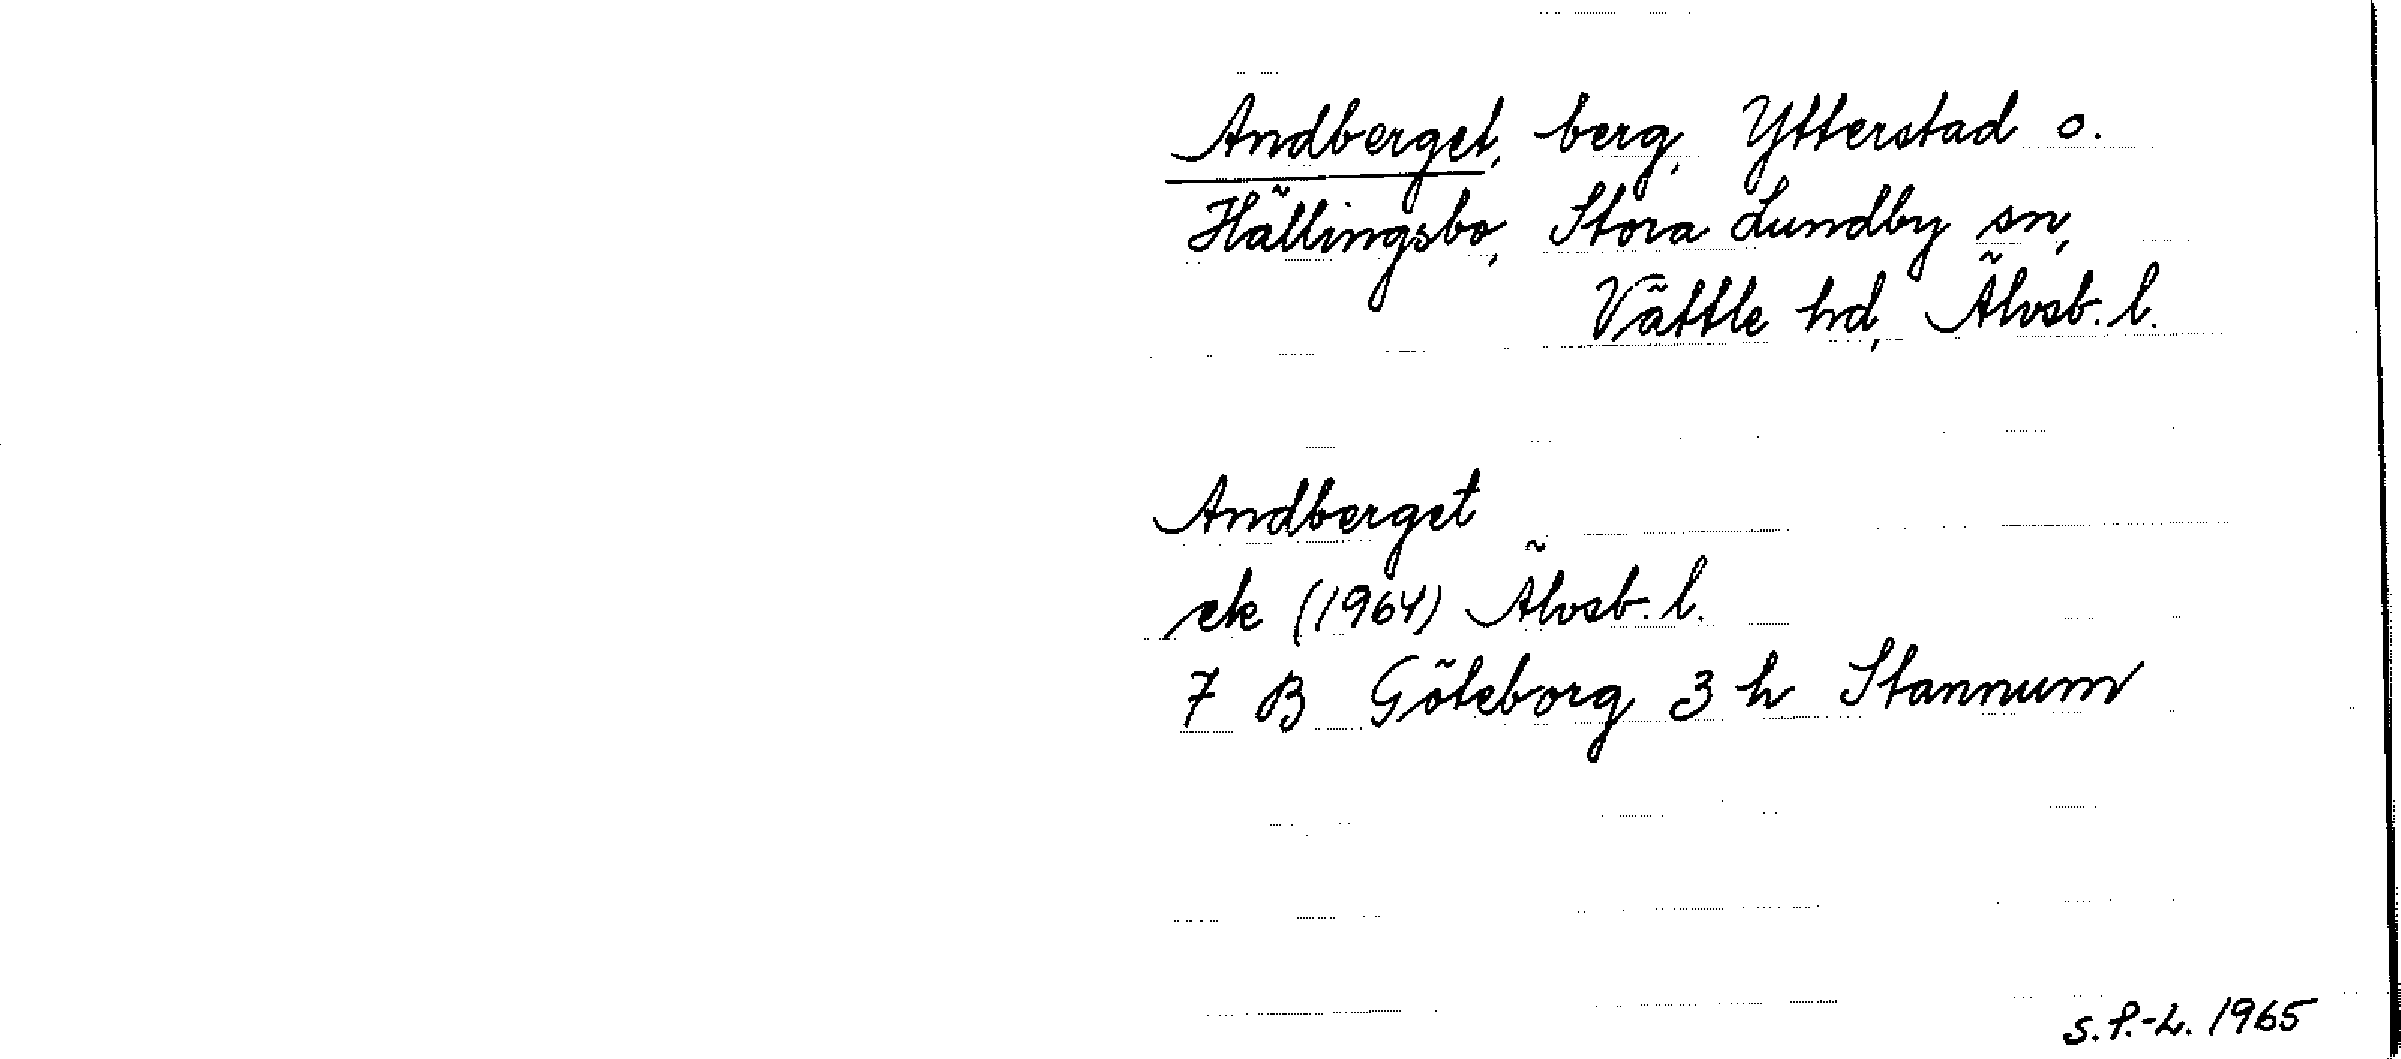 Andberget, berg, Ytterstad o.
Hällingsbo, Stora Lundby sn,
Vättle hd, Älvsb. l.
Andberget
ek (1964) Älvsb. l.
7 B Göteborg 3 h Stannum
S. P.-L. 1965